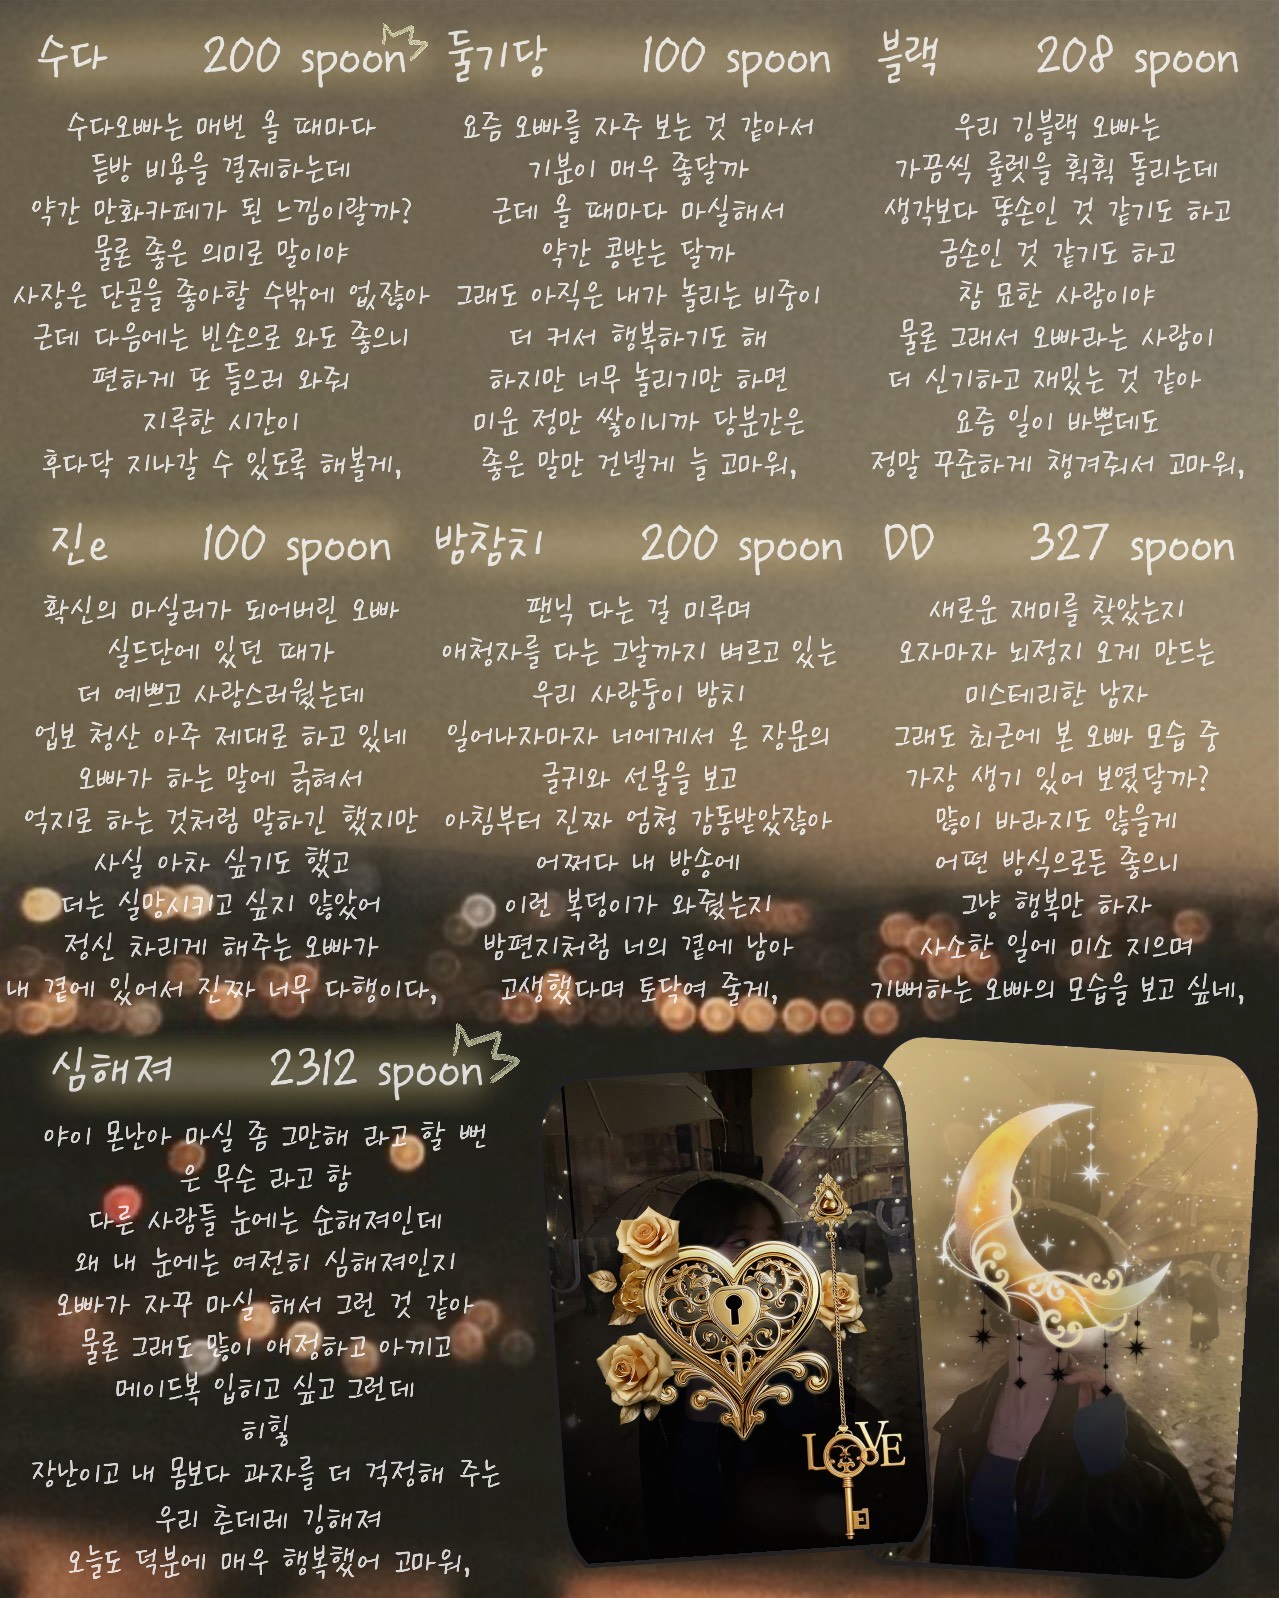 수다 200 spoon
수다오빠는 매번 올 때마다
듣방 비용을 결제하는데
약간 만화카페가 된 느낌이랄까?
물론 좋은 의미로 말이야
사장은 단골을 좋아할 수밖에 없잖아
근데 다음에는 빈손으로 와도 좋으니
편하게 또 들으러 와줘
지루한 시간이
후다닥 지나갈 수 있도록 해볼게,
둘기당 100 spoon
요즘 오빠를 자주 보는 것 같아서
기분이 매우 좋달까
근데 올 때마다 마실해서
약간 콩받는 달까
그래도 아직은 내가 놀리는 비중이
더 커서 행복하기도 해
하지만 너무 놀리기만 하면
미운 정만 쌓이니까 당분간은
좋은 말만 건넬게 늘 고마워,
블랙 208 spoon
우리 깅블랙 오빠는
가끔씩 룰렛을 휙휙 돌리는데
생각보다 똥손인 것 같기도 하고
금손인 것 같기도 하고
참 묘한 사람이야
물론 그래서 오빠라는 사람이
더 신기하고 재밌는 것 같아
요즘 일이 바쁜데도
정말 꾸준하게 챙겨줘서 고마워,
진e 100 spoon
확신의 마실러가 되어버린 오빠
실드단에 있던 때가
더 예쁘고 사랑스러웠는데
업보 청산 아주 제대로 하고 있네
오빠가 하는 말에 긁혀서
억지로 하는 것처럼 말하긴 했지만
사실 아차 싶기도 했고
더는 실망시키고 싶지 않았어
정신 차리게 해주는 오빠가
내 곁에 있어서 진짜 너무 다행이다,
밤참치 200 spoon
팬닉 다는 걸 미루며
애청자를 다는 그날까지 벼르고 있는
우리 사랑둥이 밤치
일어나자마자 너에게서 온 장문의
글귀와 선물을 보고
아침부터 진짜 엄청 감동받았잖아
어쩌다 내 방송에
이런 복덩이가 와줬는지
밤편지처럼 너의 곁에 남아
고생했다며 토닥여 줄게,
DD 327 spoon
새로운 재미를 찾았는지
오자마자 뇌정지 오게 만드는
미스테리한 남자
그래도 최근에 본 오빠 모습 중
가장 생기 있어 보였달까?
많이 바라지도 않을게
어떤 방식으로든 좋으니
그냥 행복만 하자
사소한 일에 미소 지으며
기뻐하는 오빠의 모습을 보고 싶네,
심해져 2312 spoon
야이 몬난아 마실 좀 그만해 라고 할 뻔
은 무슨 라고 함
다른 사람들 눈에는 순해져인데
왜 내 눈에는 여전히 심해져인지
오빠가 자꾸 마실 해서 그런 것 같아
물론 그래도 많이 애정하고 아끼고
메이드복 입히고 싶고 그런데
히힣
장난이고 내 몸보다 과자를 더 걱정해 주는
우리 츤데레 깅해져
오늘도 덕분에 매우 행복했어 고마워,
LOVE